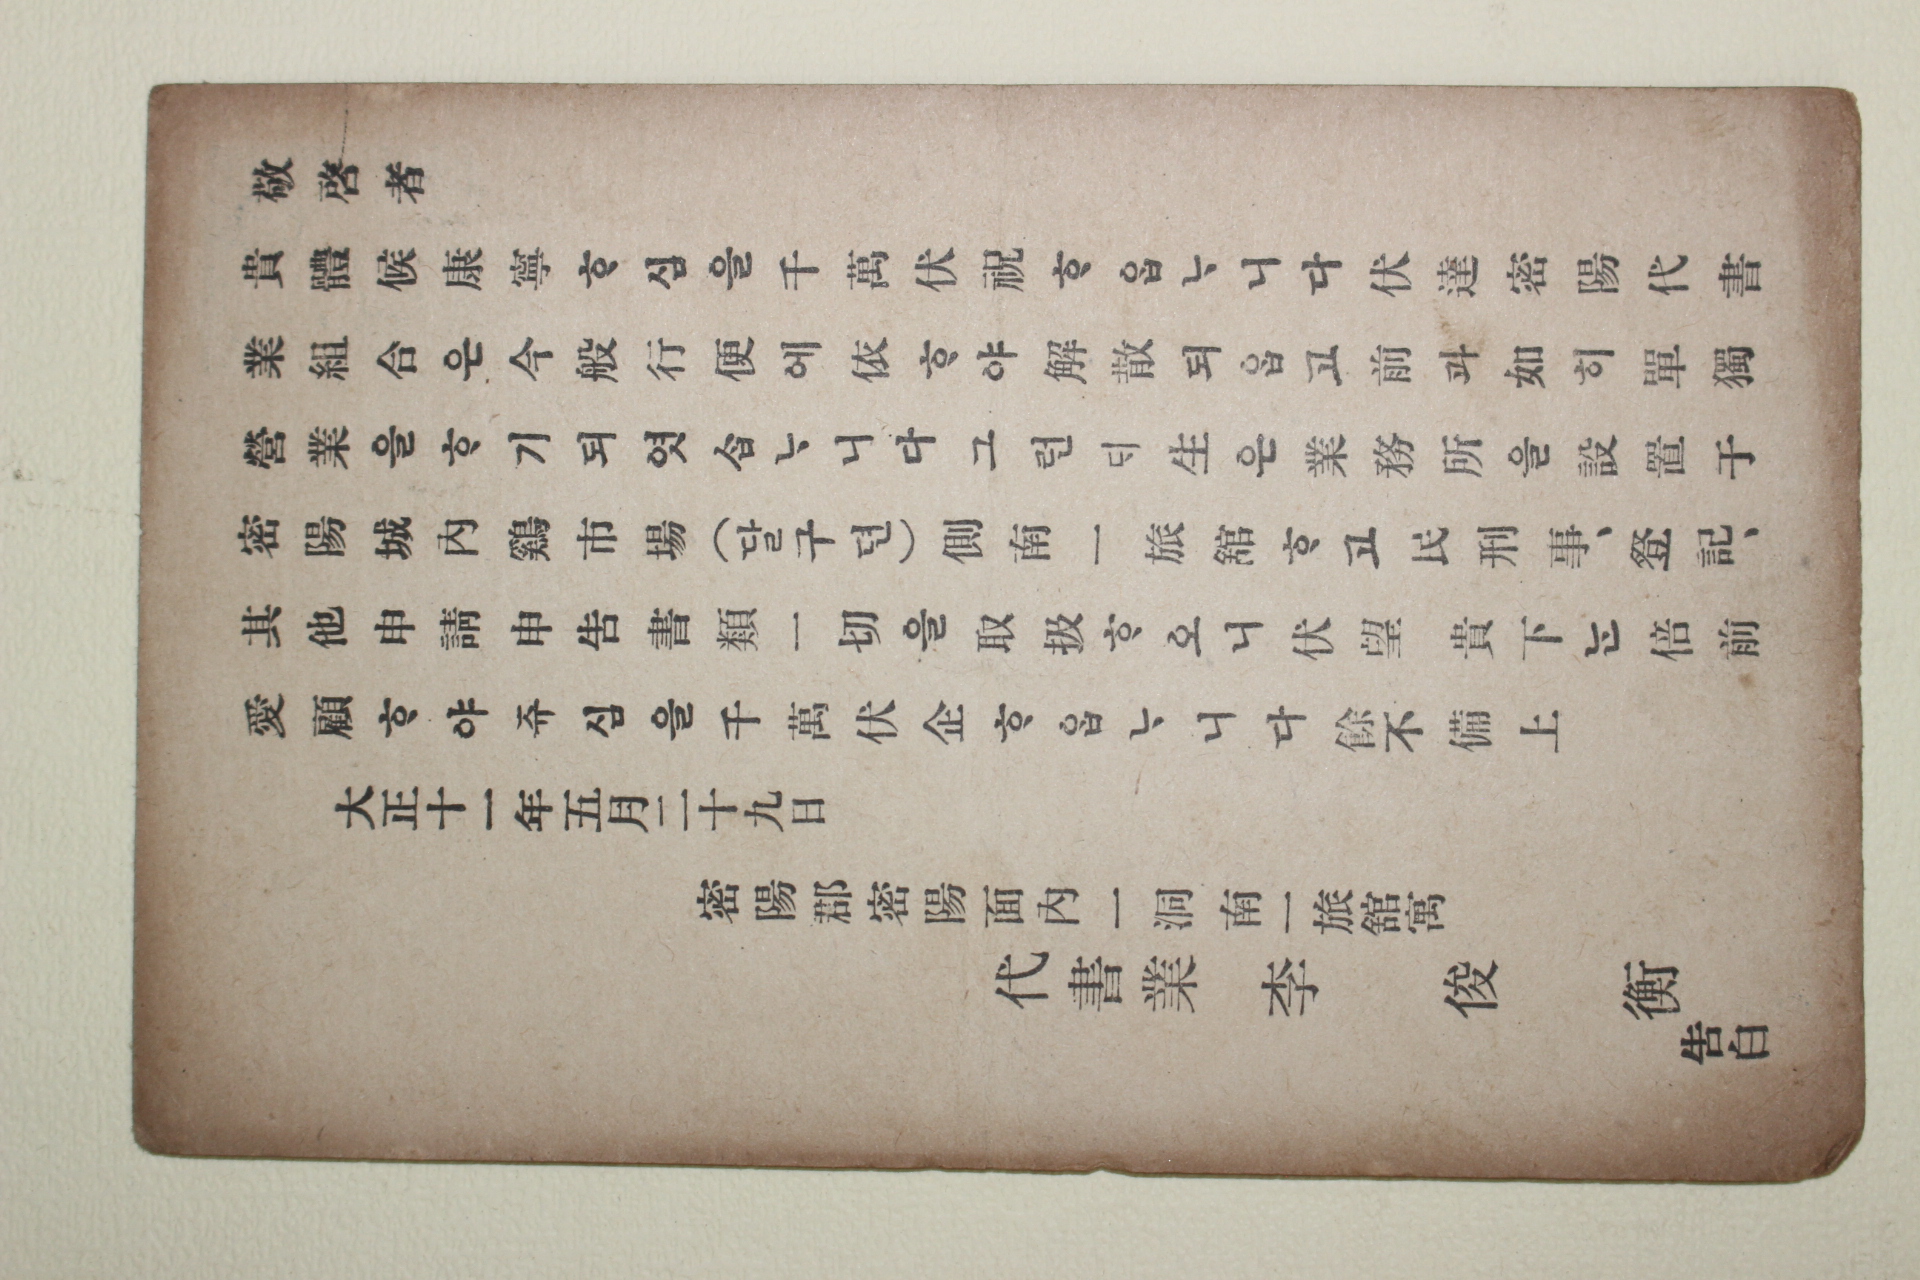 敬啓者
貴體候康寧ᄒᆞ심을千萬伏祝ᄒᆞ읍ᄂᆞ니다伏達密陽代書
業組合은今般行便에依ᄒᆞ야解散되읍고前과如히單獨
營業을ᄒᆞ기되엿슴ᄂᆞ니다그런ᄃᆡ生은業務所을設置于
密陽城內鷄市場(달구뎐)側南一旅舘ᄒᆞ고民刑事、登記、
其他申請申告書類一切을取扱ᄒᆞ오니伏望 貴下는倍前
愛顧ᄒᆞ야쥬심을千萬伏企ᄒᆞ읍ᄂᆞ니다餘不備上
大正十一年五月二十九日
密陽郡密陽面內一洞南一旅舘寓
代書業 李俊衡
告白